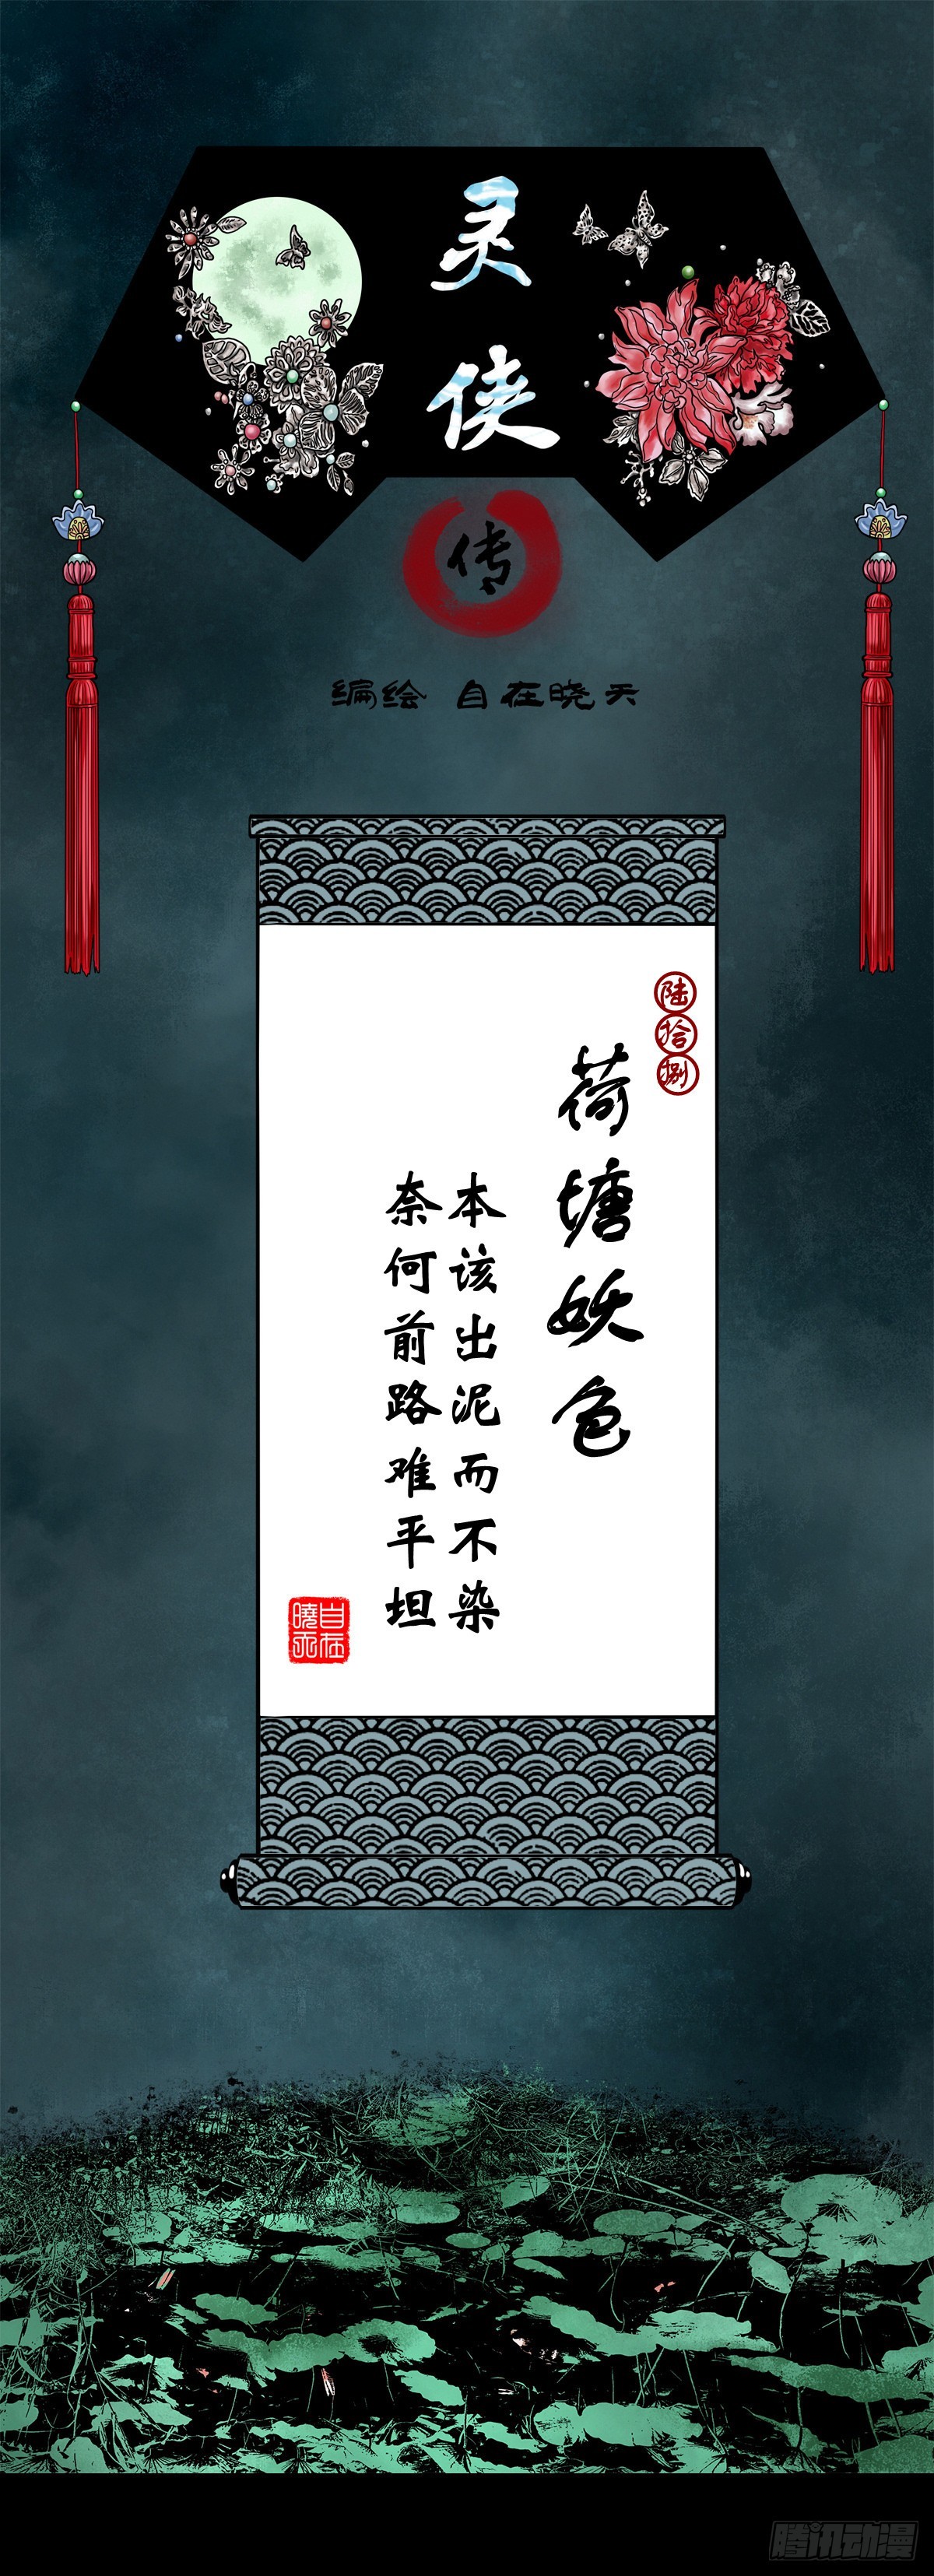 灵侠
传
编绘 自在晓天
陆拾捌
荷塘妖色
本该出泥而不染
奈何前路难平坦
自在曉天
腾讯动漫